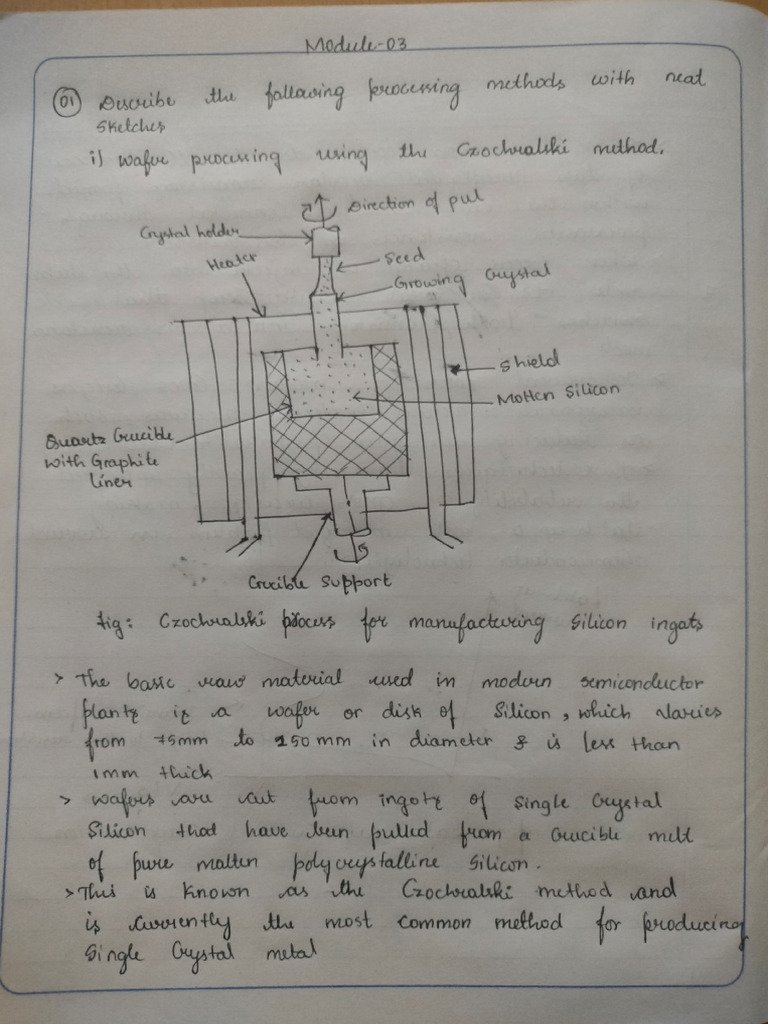 Module-03
01 Describe the following processing methods with neat
Sketches
i) wafer processing using the Czochralski method.
Direction of pul
Crystal holder
Seed
Heater
Growing Crystal
Shield
Molten Silicon
Quartz Crucible
with Graphite
liner
Crucible Support
fig: Czochralski process for manufacturing Silicon ingats
> The basic raw material used in modern semiconductor
plants is a wafer or disk of Silicon, which varies
from 75mm to 150mm in diameter & is less than
1mm thick
> wafers are cut from ingots of Single Crystal
Silicon that have been pulled from a crucible melt
of pure molten polycrystalline Silicon.
> This is Known as the Czochralski method and
is currently the most common method for producing
Single Crystal metal